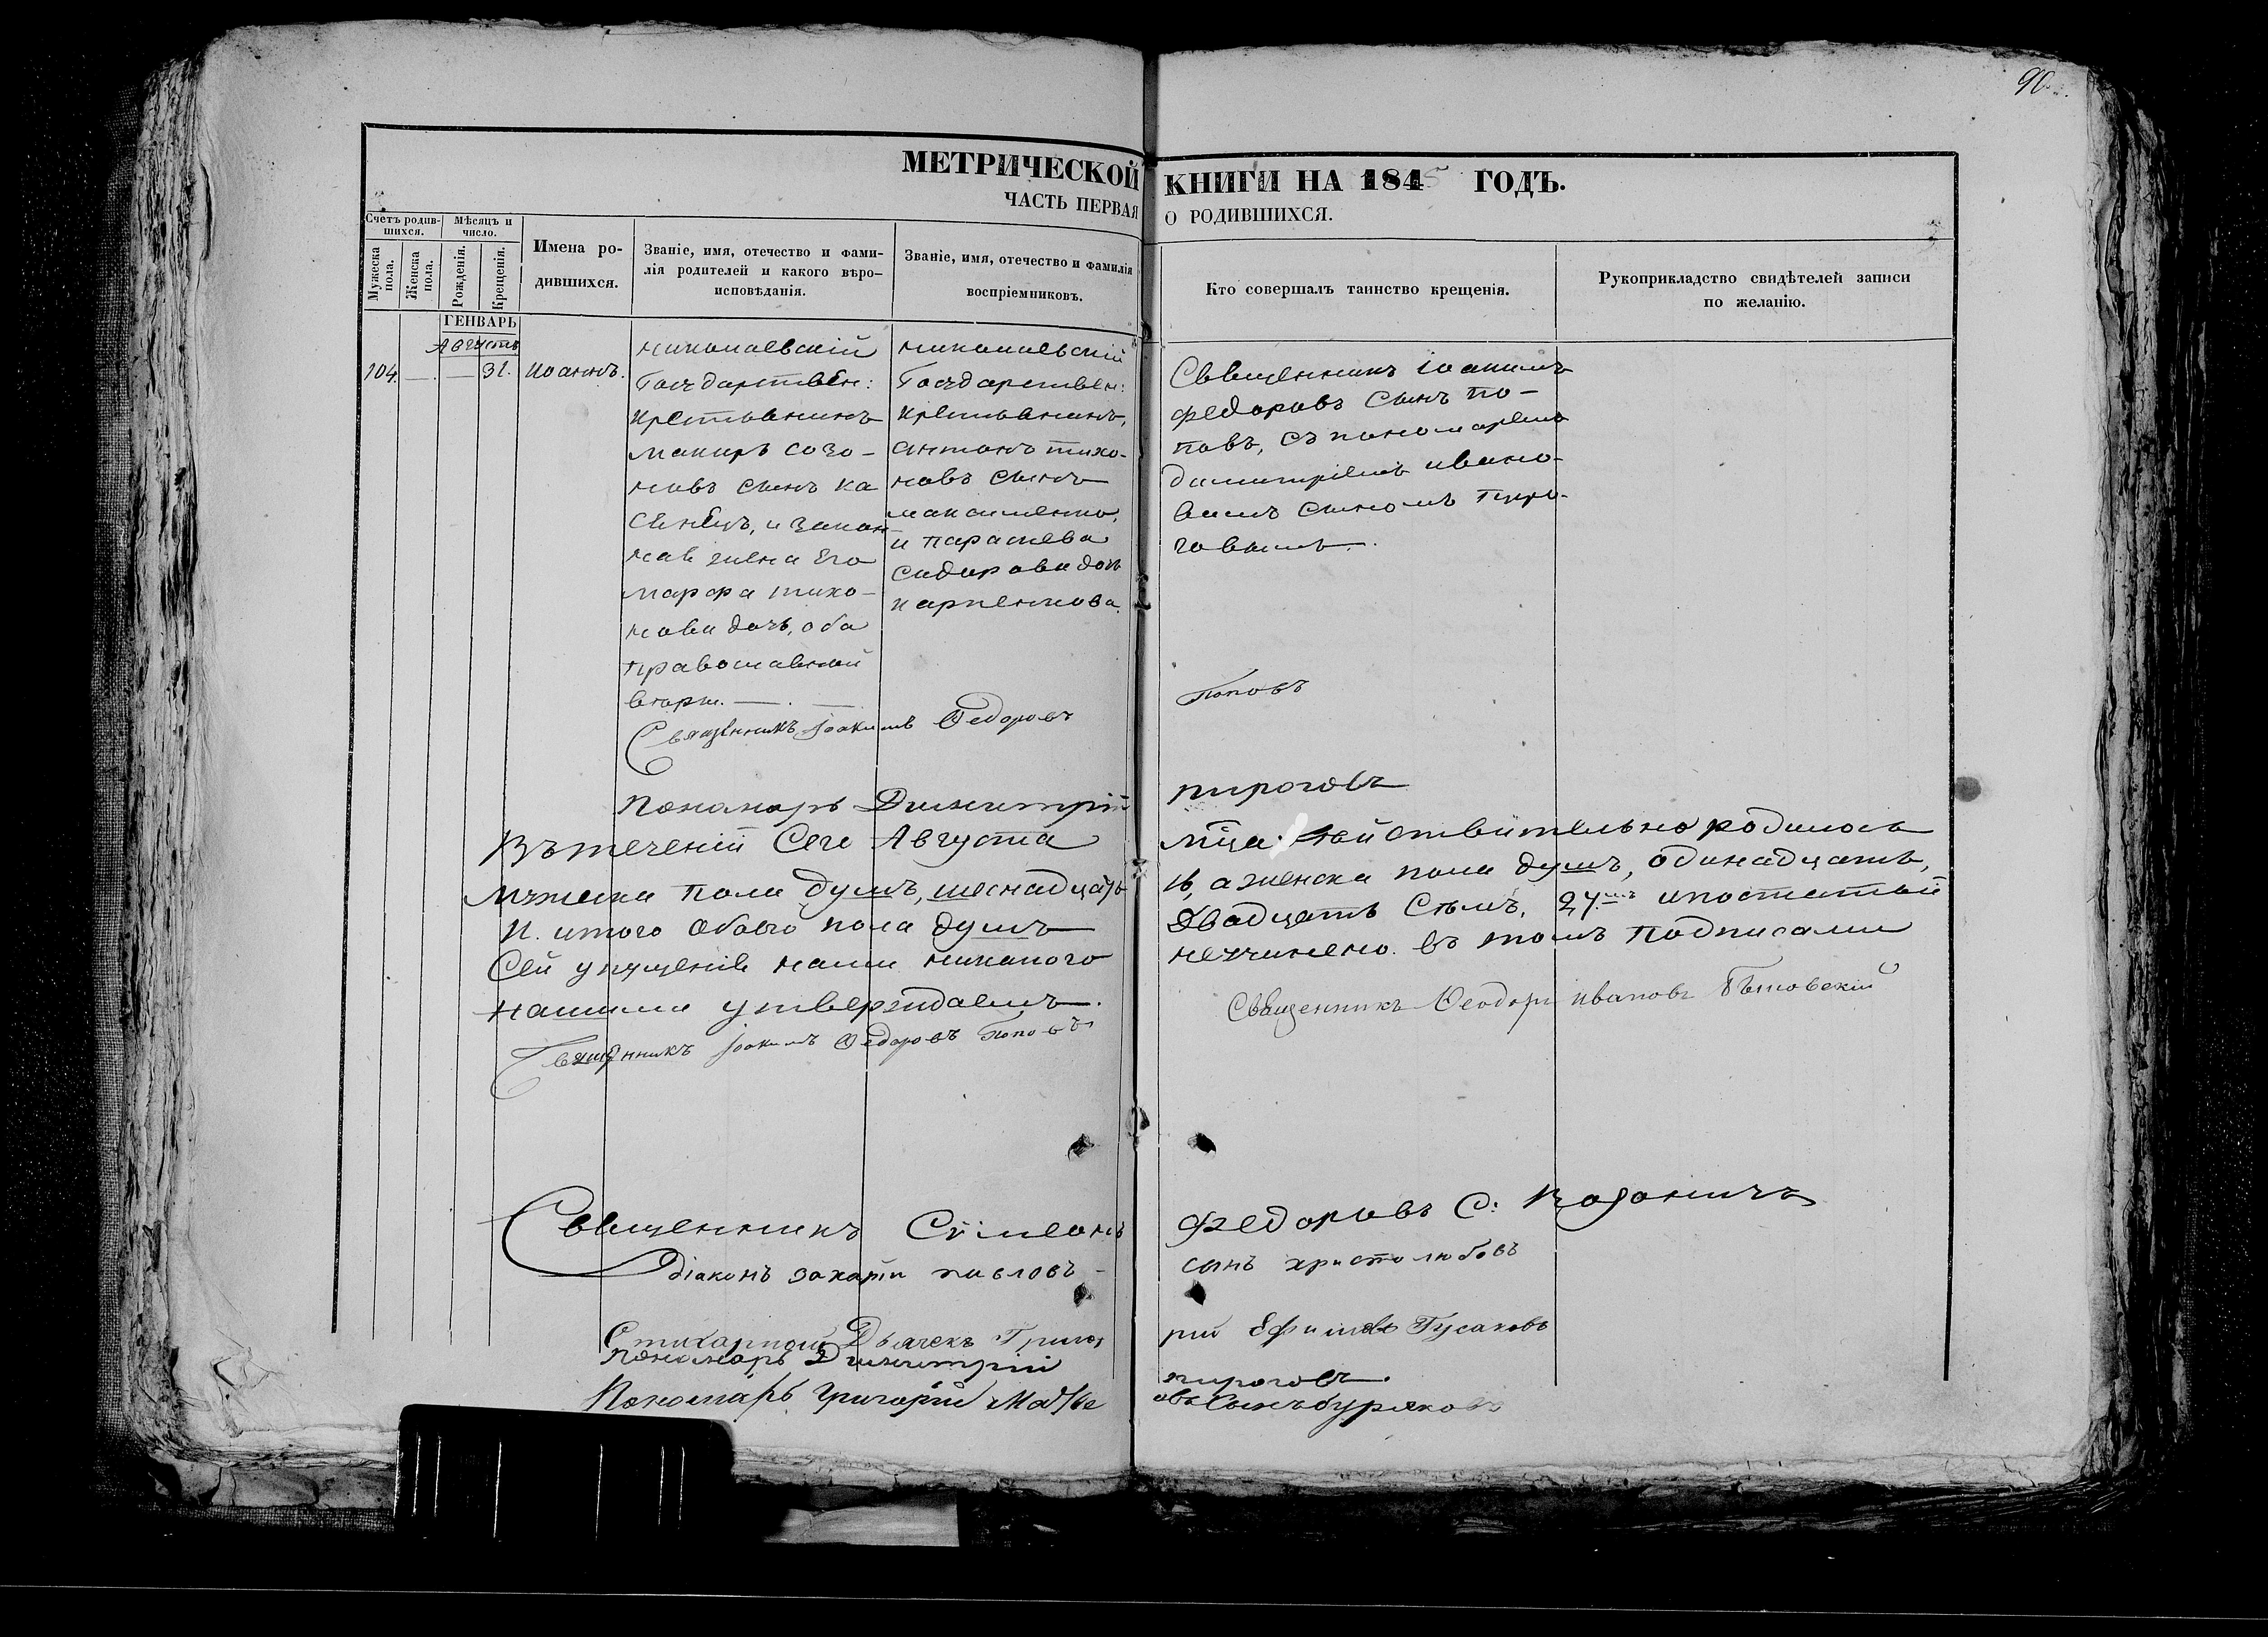 90
МЕТРИЧЕСКОЙ КНИГИ НА 1845 ГОДЪ.
ЧАСТЬ ПЕРВАЯ О РОДИВШИХСЯ.
Счетъ родив-
шихся.
Мужеска
пола.
Женска
пола.
Мѣсяцъ и
число.
Рожденія.
Крещенія.
Имена ро-
дившихся.
Званіе, имя, отечество и фами-
лія родителей и какого вѣро-
исповѣданія.
Званіе, имя, отечество и фамилія
воспріемниковъ.
Кто совершалъ таинство крещенія.
Рукоприкладство свидѣтелей записи
по желанію.
ГЕНВАРЬ
Августъ
104. — — 31. Иоаннъ.
Николаевскій
Государствен:
Крестьянинъ
Макиръ Созо-
новъ сынъ Ка
сѣнецъ, и закон
ная жена Его
Марфа Тихо-
нова дочь, оба
православной
вѣры. —. —
Николаевскій
Государствен:
Крестьянинъ,
Антонъ Тихо-
новъ сынъ
Максименко,
и Параскева
Сидорова дочь
Карпенкова.
Священникъ Іоакимъ
Федоровъ сынъ По-
повъ, съ пономаремъ
Димитріемъ Ивано-
вымъ сыномъ Пиро-
говымъ.
Священникъ Іоакимъ Ѳедоровъ Поповъ
Пономарь Димитрій Пироговъ
Въ теченіи Сего Августа мца действительно родилось
мужеска пола душъ, шеснадцать 16, а женска пола душъ, одинадцать,
11. итого обоего пола душъ Двадцать Сѣмъ, 27мъ и по статьи
Сей упущенія нами никакого неучинено. въ томъ подписами
нашими утверждаемъ.
Священникъ Іоакимъ Ѳедоровъ Поповъ
Священникъ Ѳеодоръ Ивановъ
Священникъ Сѵмеонъ Федоровъ С:
діаконъ Захарій Павловъ сынъ Христолюбовъ
Стихарный Дьячекъ Григорій Ефимовъ Гусаковъ
Пономарь Димитрій Пироговъ.
Пономарь Григорій Матвеевъ Сынъ Буряковъ